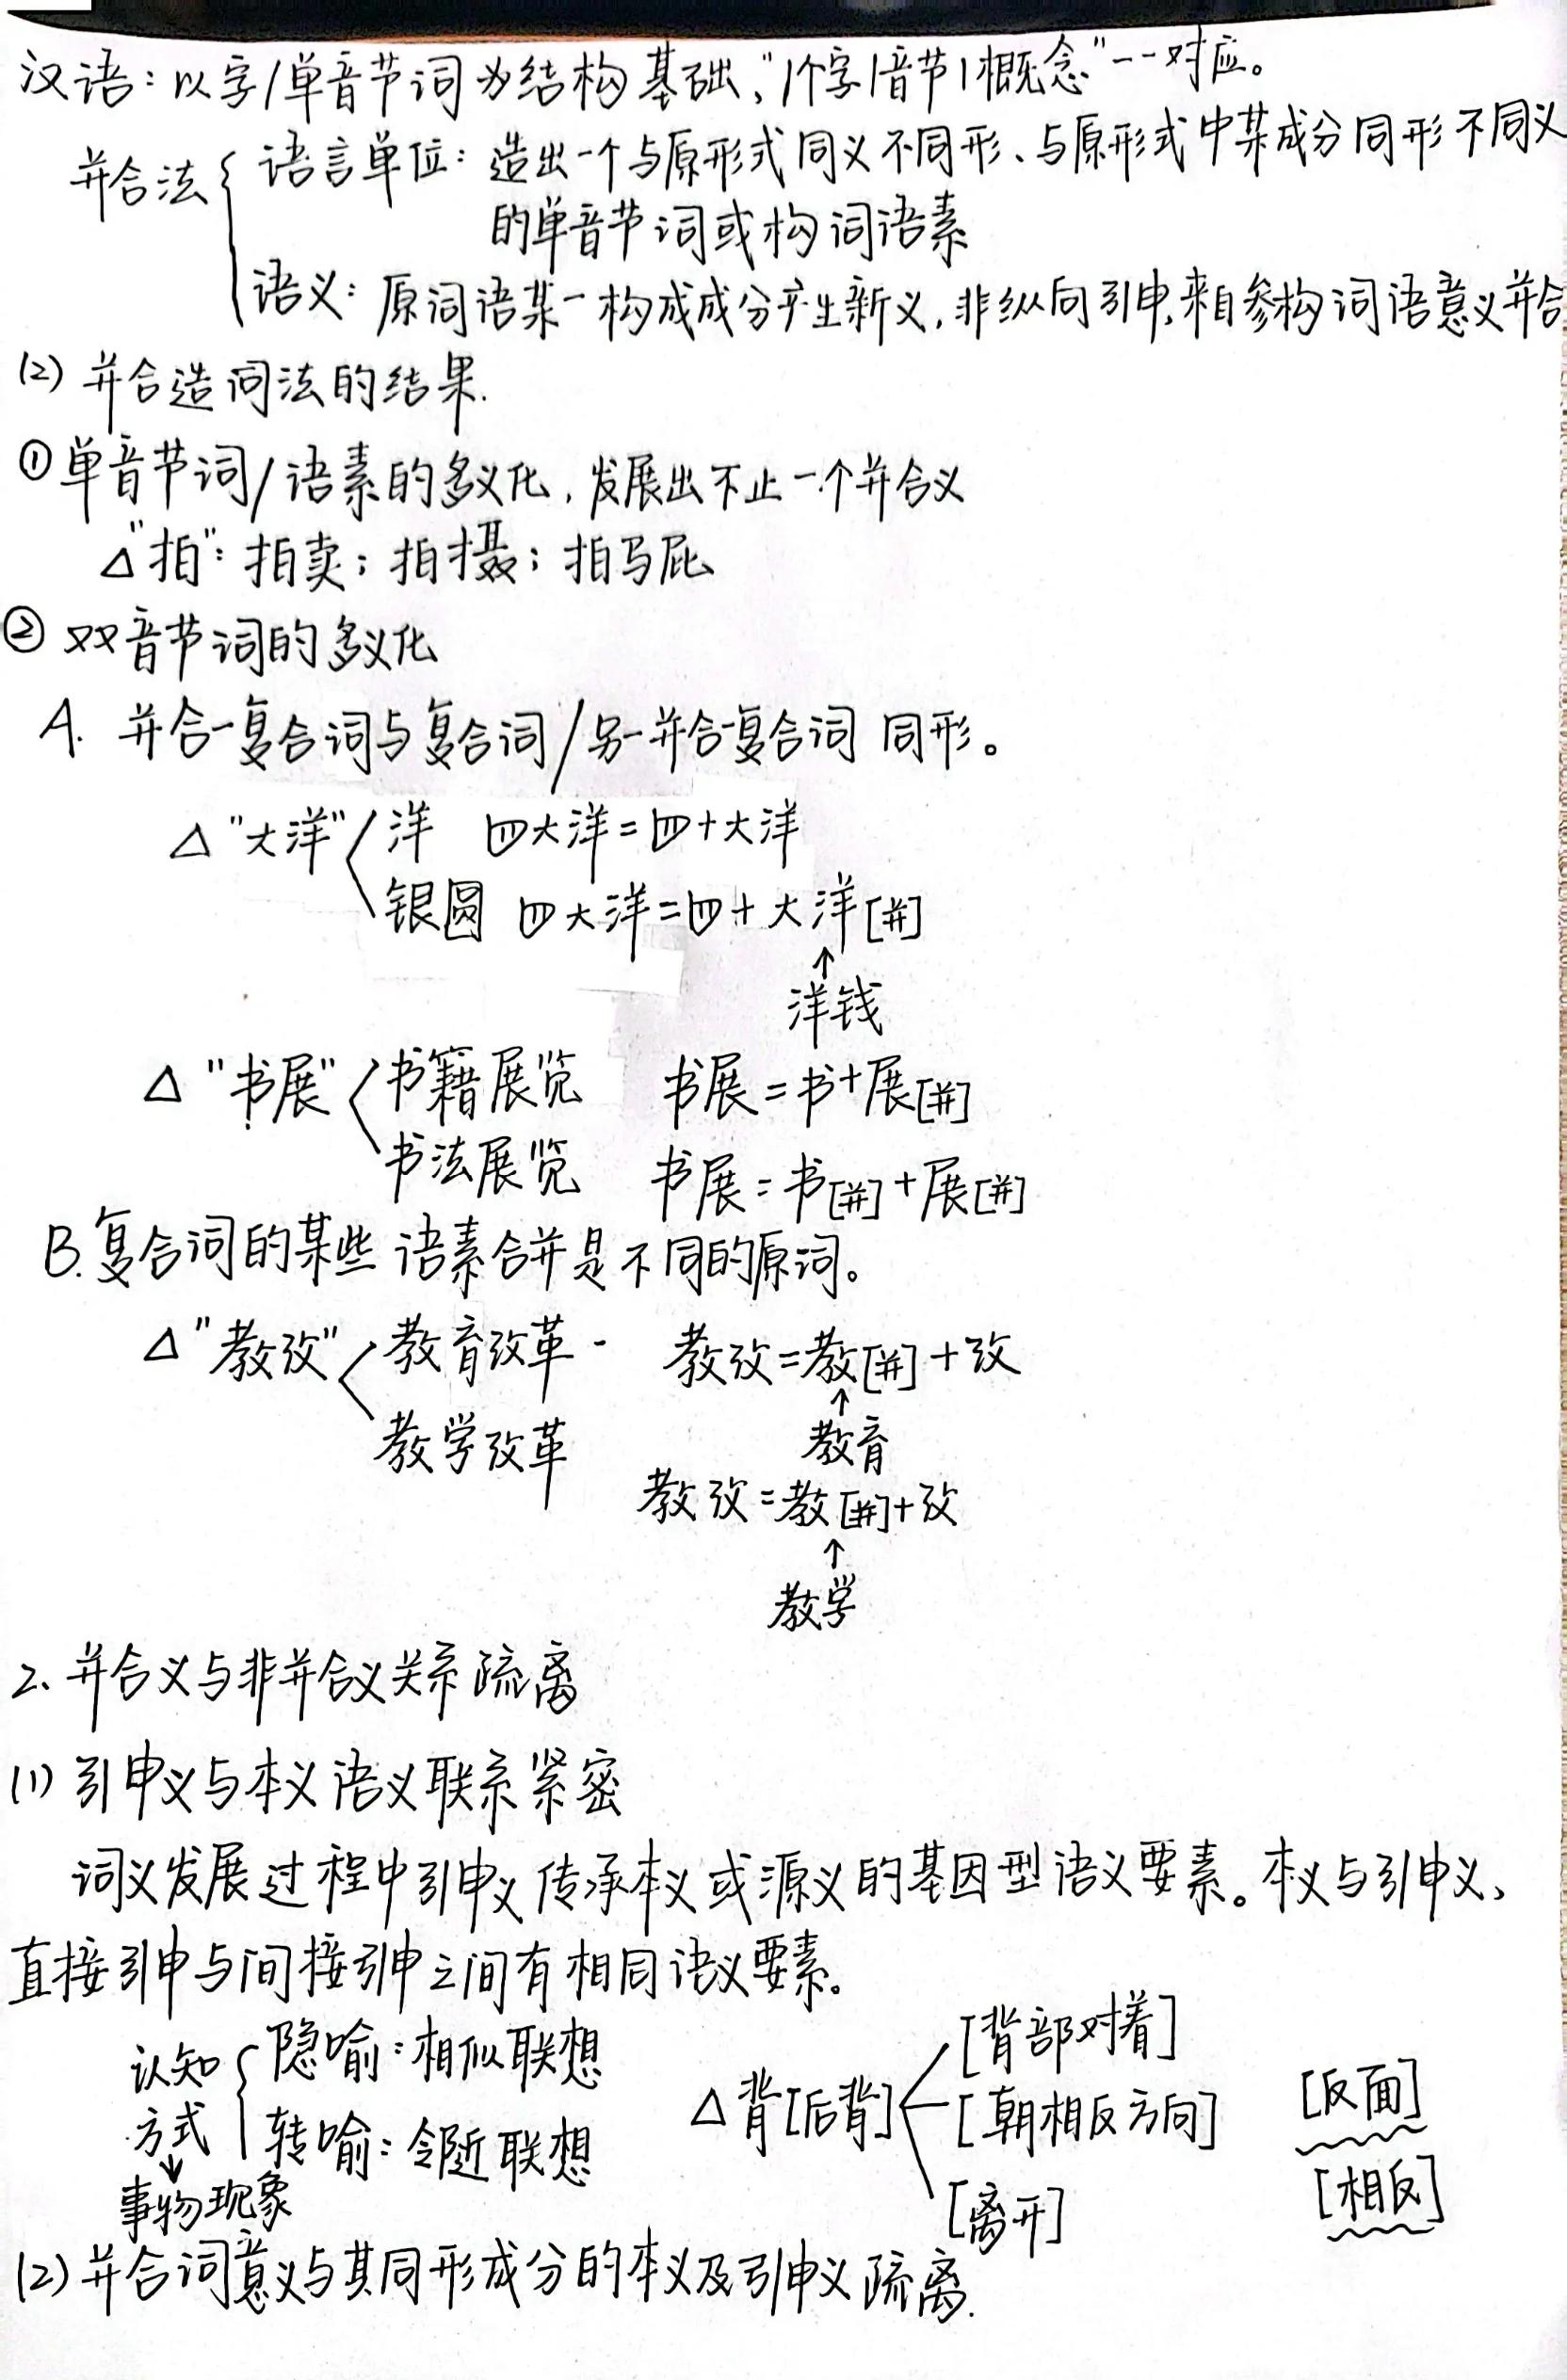 汉语：以字/单音节词为结构基础，"1个字1音节1概念"一一对应。
并合法
语言单位：造出一个与原形式同义不同形、与原形式中某成分同形不同义
的单音节词或构词语素
语义：原词语某一构成成分产生新义，非纵向引申，来自参构词语意义并合
(2) 并合造词法的结果.
①单音节词/语素的多义化，发展出不止一个并合义
△"拍"：拍卖；拍摄；拍马屁
②双音节词的多义化
A. 并合-复合词与复合词/另一并合复合词 同形。
△"大洋" 洋 四大洋=四+大洋
银圆 四大洋=四+大洋[并]
↑
洋钱
△"书展" 书籍展览 书展=书+展[并]
书法展览 书展=书[并]+展[并]
B.复合词的某些语素合并是不同的原词。
△"教改" 教育改革- 教改=教[并]+改
↑
教学改革 教育
教改=教[并]+改
↑
教学
2、并合义与非并合义关系疏离
(1) 引申义与本义语义联系紧密
词义发展过程中引申义传承本义或源义的基因型语义要素。本义与引申义、
直接引申与间接引申之间有相同语义要素。
认知方式
↓
事物现象
隐喻：相似联想
转喻：邻近联想
△背[后背]
[背部对着]
[朝相反方向] [反面]
[离开] [相反]
(2)并合词意义与其同形成分的本义及引申义疏离.